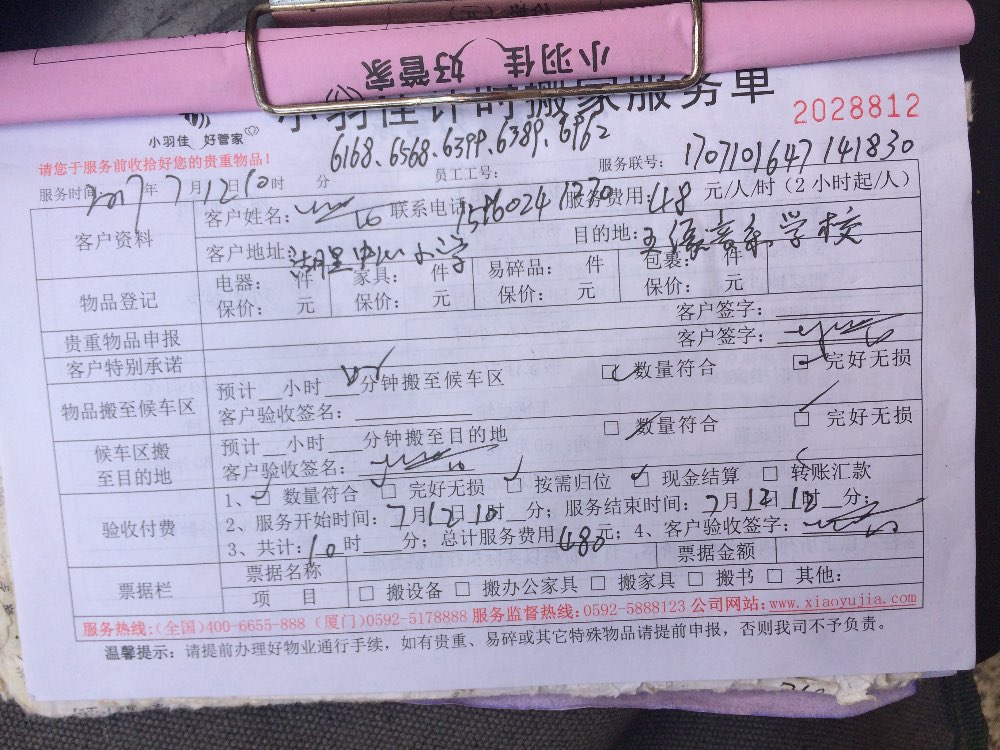 小羽佳 好管家
小羽佳计时搬家服务单
2028812
小羽佳 好管家
6168、6568、6399、6389、6962
请您于服务前收拾好您的贵重物品!
服务时间: 2017年7月12日10时 分 员工工号: 服务联号: 1707101647141830
客户资料
客户姓名: 联系电话: 服务费用: 48 元/人/时(2小时起/人)
客户地址: 湖里中心小学 目的地: 学校
物品登记
电器: 件 家具: 件 易碎品: 件 包裹: 件
保价: 元 保价: 元 保价: 元 保价: 元
贵重物品申报 客户签字:
客户特别承诺 客户签字:
物品搬至候车区
预计__小时__分钟搬至候车区 □数量符合 □完好无损
客户验收签名:
候车区搬至目的地
预计__小时__分钟搬至目的地 □数量符合 □完好无损
客户验收签名:
验收付费
1、□数量符合 □完好无损 □按需归位 □现金结算 □转账汇款
2、服务开始时间: 7月12日10时__分; 服务结束时间: 7月12日12时__分;
3、共计: 10时__分; 总计服务费用480元; 4、客户验收签字:
票据栏
票据名称 票据金额
项 目 □搬设备 □搬办公家具 □搬家具 □搬书 □其他:
服务热线:(全国)400-6655-888 (厦门)0592-5178888 服务监督热线:0592-5888123 公司网站:www.xiaoyujia.com
温馨提示: 请提前办理好物业通行手续, 如有贵重、易碎或其它特殊物品请提前申报, 否则我司不予负责。